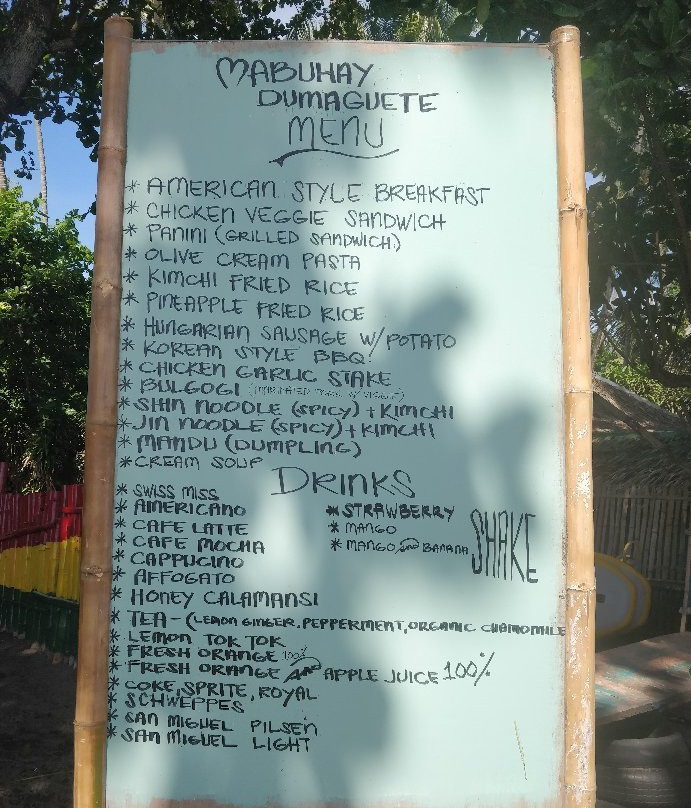 MABUHAY
DUMAGUETE
MENU
* AMERICAN STYLE BREAKFAST
* CHICKEN VEGGIE SANDWICH
* PANINI (GRILLED SANDWICH)
* OLIVE CREAM PASTA
* KIMCHI FRIED RICE
* PINEAPPLE FRIED RICE
* HUNGARIAN SAUSAGE W/POTATO
* KOREAN STYLE BBQ!
* CHICKEN GARLIC STAKE
* BULGOGI
* SHIN NOODLE (SPICY) + KIMCHI
* JIN NOODLE (SPICY) + KIMCHI
* MANDU (DUMPLING)
* CREAM SOUP
DRINKS
* SWISS MISS
* AMERICANO
* CAFE LATTE
* CAFE MOCHA
* CAPPUCINO
* AFFOGATO
* HONEY CALAMANSI
* TEA - (LEMON GINGER, PEPPERMENT, ORGANIC CHAMOMILE
* LEMON TOK TOK
* FRESH ORANGE 100%
* FRESH ORANGE AND APPLE JUICE 100%
* COKE, SPRITE, ROYAL
* SCHWEPPES
* SAN MIGUEL PILSEN
* SAN MIGUEL LIGHT
* STRAWBERRY
* MANGO
* MANGO and BANANA
SHAKE